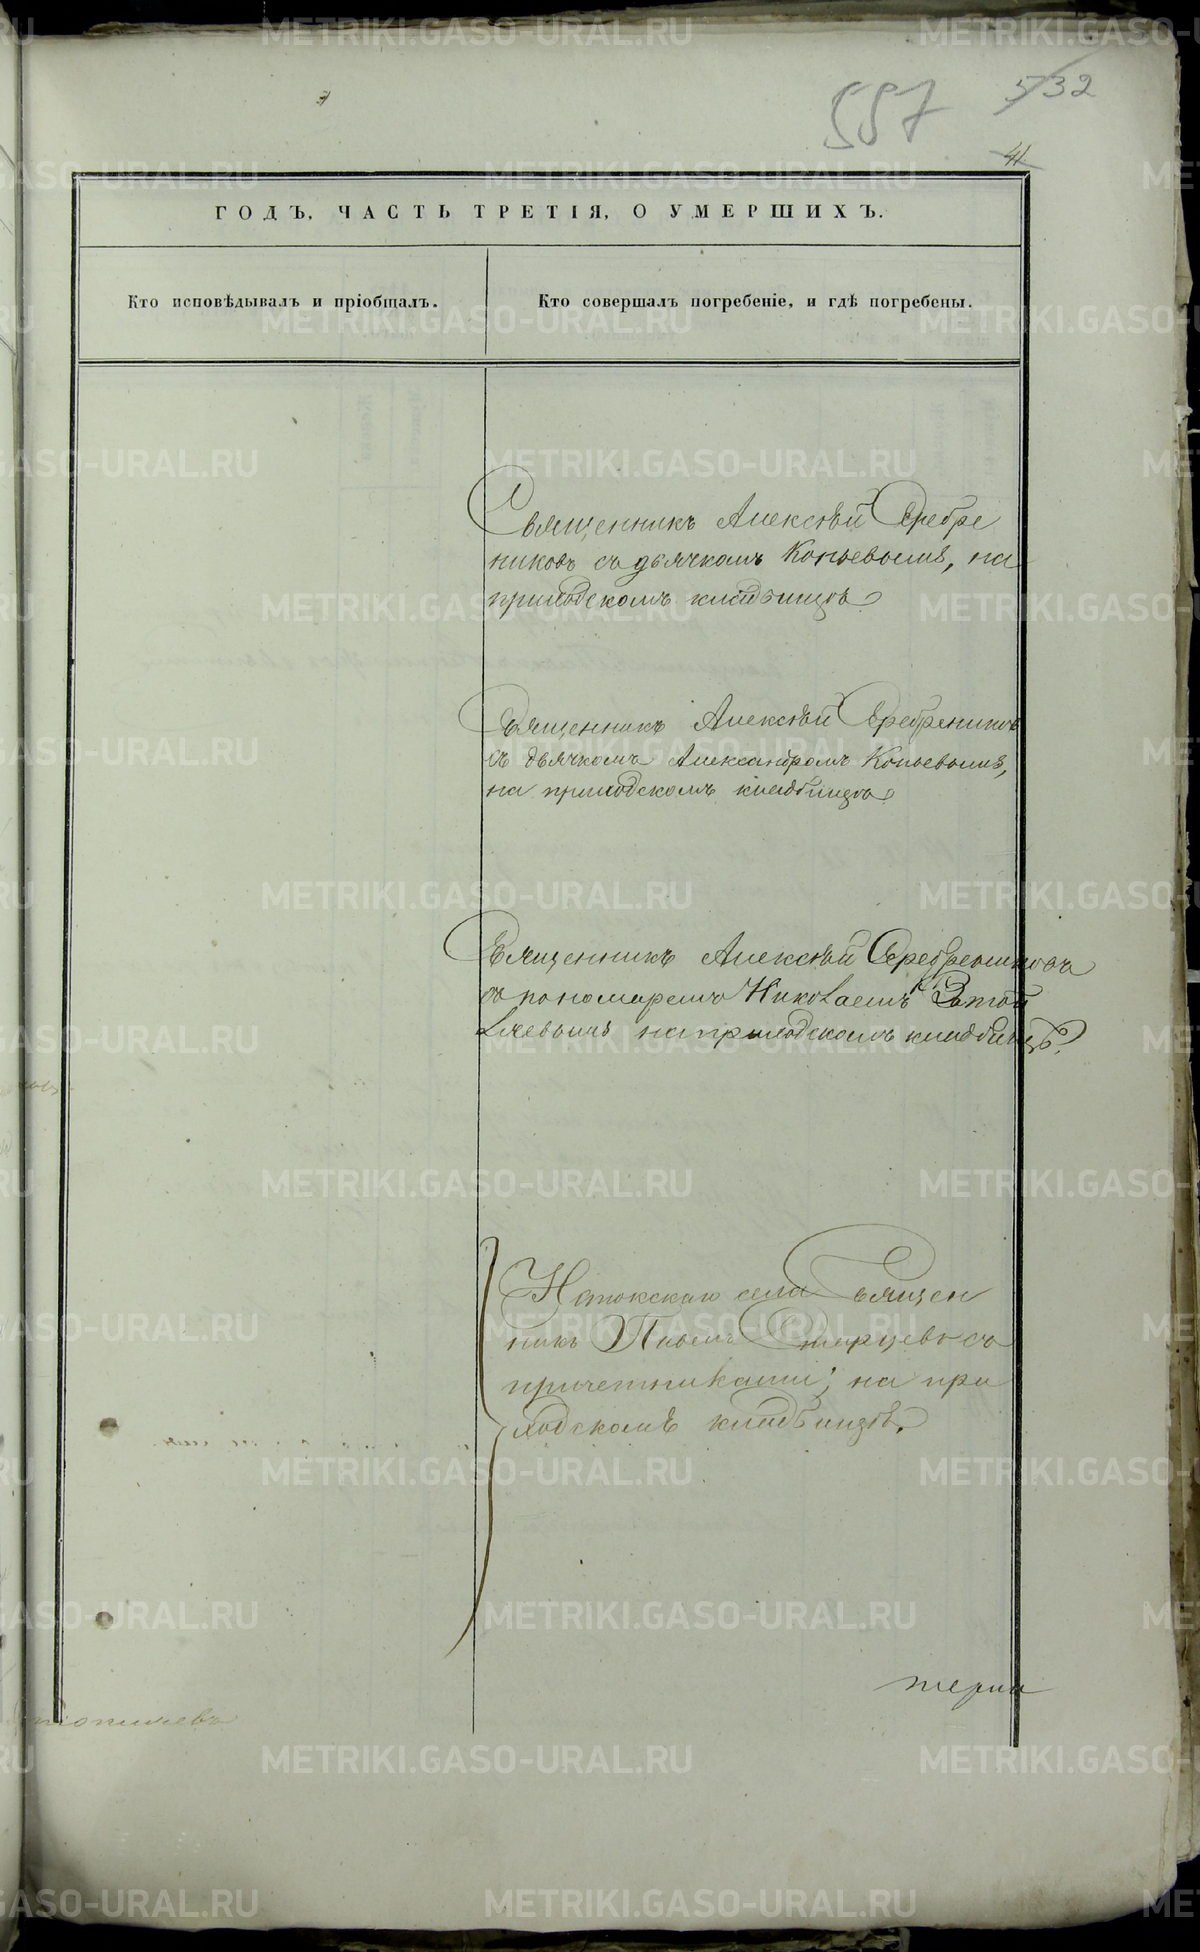 557
532
41
ГОДЪ. ЧАСТЬ ТРЕТІЯ, О УМЕРШИХЪ.
Кто исповѣдывалъ и пріобщалъ.
Кто совершалъ погребеніе, и гдѣ погребены.
Священникъ Алексѣй Серебре
никовъ съ дьячкомъ Копьевымъ, на
приходскомъ кладбищѣ
Священникъ Алексѣй Серебрениковъ
съ дьячкомъ Александромъ Копьевымъ,
на приходскомъ кладбищѣ
Священникъ Алексѣй Серебрениковъ
съ пономаремъ Николаемъ
на приходскомъ кладбищѣ.
села Священ
никъ Старцевъ съ
причетниками, на при
ходскомъ кладбищѣ.
METRIKI.GASO-URAL.RU